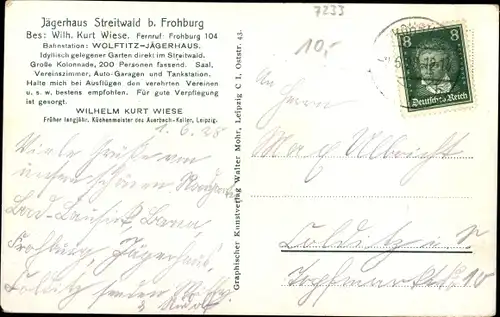 Jägerhaus Streitwald b. Frohburg
Bes: Wilh. Kurt Wiese. Fernruf: Frohburg 104
Bahnstation: WOLFTITZ-JÄGERHAUS.
Idyllisch gelegener Garten direkt im Streitwald.
Große Kolonnade, 200 Personen fassend. Saal,
Vereinszimmer, Auto-Garagen und Tankstation.
Halte mich bei Ausflügen den verehrten Vereinen
u. s. w. bestens empfohlen. Für gute Verpflegung
ist gesorgt.
WILHELM KURT WIESE
Früher langjähr. Küchenmeister des Auerbach-Keller, Leipzig.
1.6.28
Viele Grüße von
schönen
Bad-Lausick, Borna,
Frohburg, Jägerhaus,
Colditz senden
Graphischer Kunstverlag Walter Mohr, Leipzig C 1, Oststr. 43.
7233
10,-
8 8
Deutsches Reich
An Herrn
Max Ulbricht
Colditz i. S